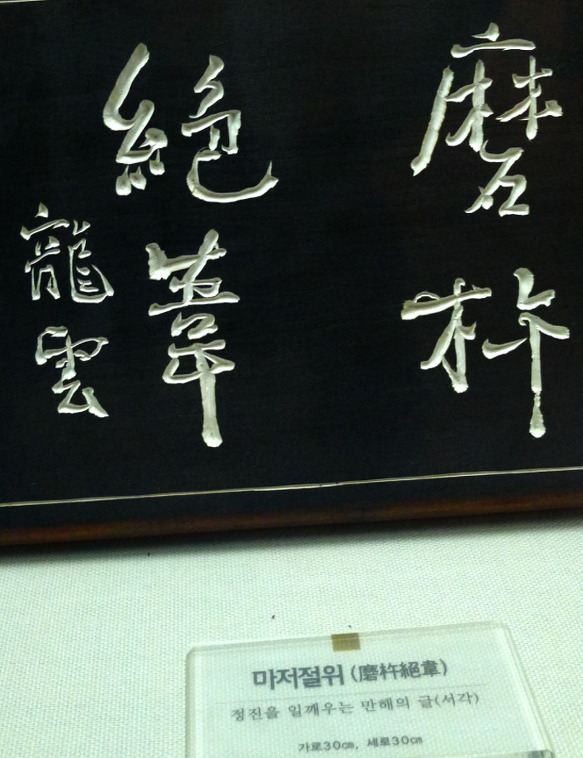 磨杵
絕韋
龍雲
마저절위 (磨杵絕韋)
정진을 일깨우는 만해의 글(서각)
가로30㎝, 세로30㎝